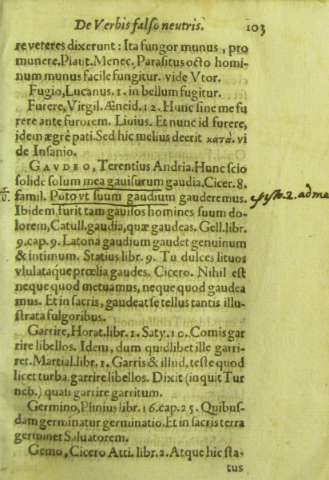 De Verbis falso neutris. 103
re veteres dixerunt: Ita fungor munus, pro
munere. Plaut. Menec. Parasitus octo homi-
num munus facile fungitur. vide Vtor.
Fugio, Lucanus. 1. in bellum fugitur.
Furere, Virgil. Æneid. 12. Hunc sine me fu
rere ante furorem. Liuius. Et nunc id furere,
idem ægrè pati. Sed hic melius deerit κατὰ. vi
de Insanio.
GAVDEO, Terentius Andria. Hunc scio
solidè solum mea gauisurum gaudia. Cicer. 8.
famil. Puto vt suum gaudium gauderemus.
Ibidem, furit tam gauisos homines suum do-
lorem, Catull. gaudia, quæ gaudeas. Gell. libr.
9. cap. 9. Latona gaudium gaudet genuinum
& intimum. Statius libr. 9. Tu dulces lituos
vlulataque prœlia gaudes. Cicero. Nihil est
neque quod metuamus, neque quod gaudea
mus. Et in sacris, gaudeat se tellus tantis illu-
strata fulgoribus.
Garrire, Horat. libr. 1. Saty. 10. Comis gar
rire libellos. Idem, dum quidlibet ille garri-
ret. Martial. libr. 1. Garris & illud, teste quod
licet turba. garrire libellos. Dixit (inquit Tur
neb.) quasi garrire garritum.
Germino, Plinius libr. 16. cap. 25. Quibus-
dam germinatur germinatio. Et in sacris terra
germinet Saluatorem.
Gemo, Cicero Atti. libr. 2. Atque hic sta-
tus